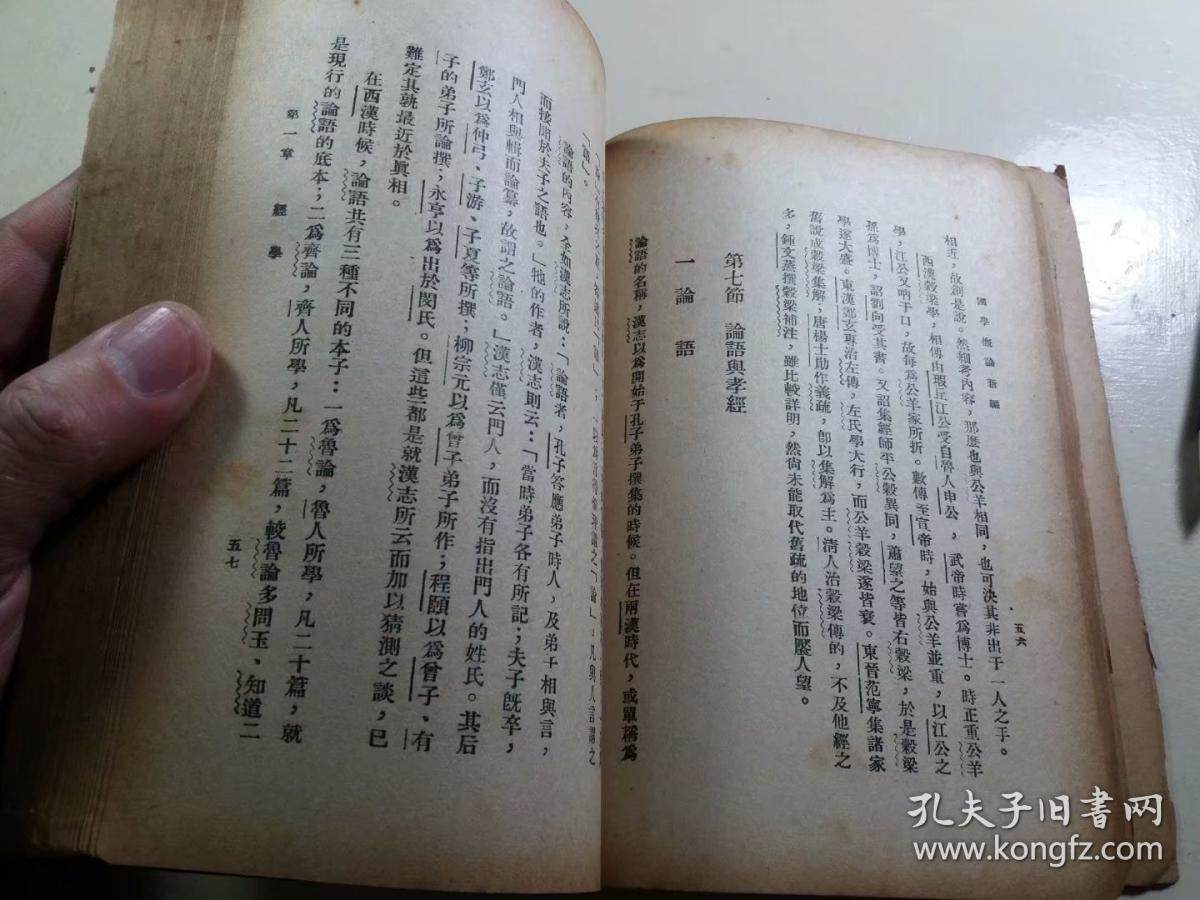 國學概論新編
五六
相近，故創是說。然細考內容，那麼也與公羊相同，也可決其非出于一人之手。
西漢穀梁學，相傳由瑕丘江公受自魯人申公，武帝時嘗爲博士。時正重公羊
學，江公又吶于口，故每爲公羊家所折。數傳至宣帝時，始與公羊並重，以江公之
孫爲博士，詔劉向受其書。又詔集經師平公穀異同，蕭望之等皆右穀梁，於是穀梁
學遂大盛。東漢鄭玄專治左傳，左氏學大行，而公羊穀梁遂皆衰。東晉范寧集諸家
舊說成穀梁集解；唐楊士助作義疏，卽以集解爲主。淸人治穀梁傳的，不及他經之
多，鍾文蒸撰穀梁補注，雖比較詳明，然尙未能取代舊疏的地位而壓人望。
第七節　論語與孝經
一　論　語
論語的名稱，漢志以爲開始于孔子弟子撰集的時候。但在兩漢時代，或單稱爲
「語」。
論語的內容，全如漢志所說：「論語者，孔子答應弟子時人，及弟子相與言，
而接聞於夫子之語也。」牠的作者，漢志則云：「當時弟子各有所記；夫子旣卒，
門人相與輯而論纂，故謂之論語。」漢志僅云門人，而沒有指出門人的姓氏。其后
鄭玄以爲仲弓、子游、子夏等所撰；柳宗元以爲曾子弟子所作；程頤以爲曾子、有
子的弟子所論撰；永亨以爲出於閔氏。但這些都是就漢志所云而加以猜測之談，已
難定其孰最近於眞相。
在西漢時候，論語共有三種不同的本子：一爲魯論，魯人所學，凡二十篇，就
是現行的論語的底本；二爲齊論，齊人所學，凡二十二篇，較魯論多問玉、知道二
第一章　經學
五七
孔夫子旧书网
www.kongfz.com